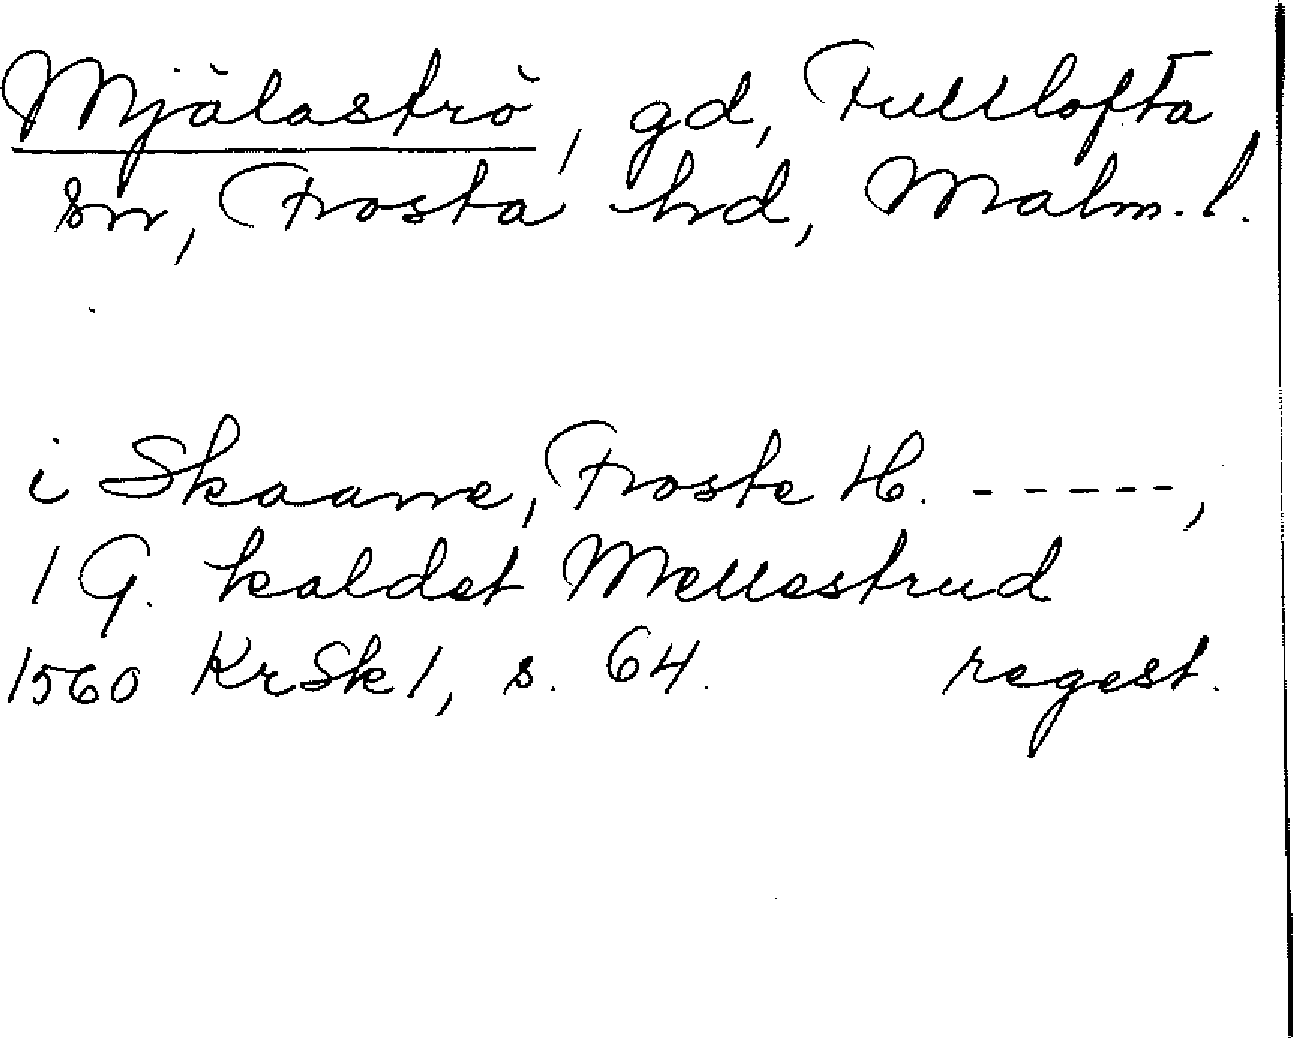 Mjälaströ, gd, Fulltofta
sn, Frosta hd, Malm. l.
i Skaane, Froste H. -----,
1 G. kaldet Mellestrud
1560 KrSk 1, s. 64. regest.